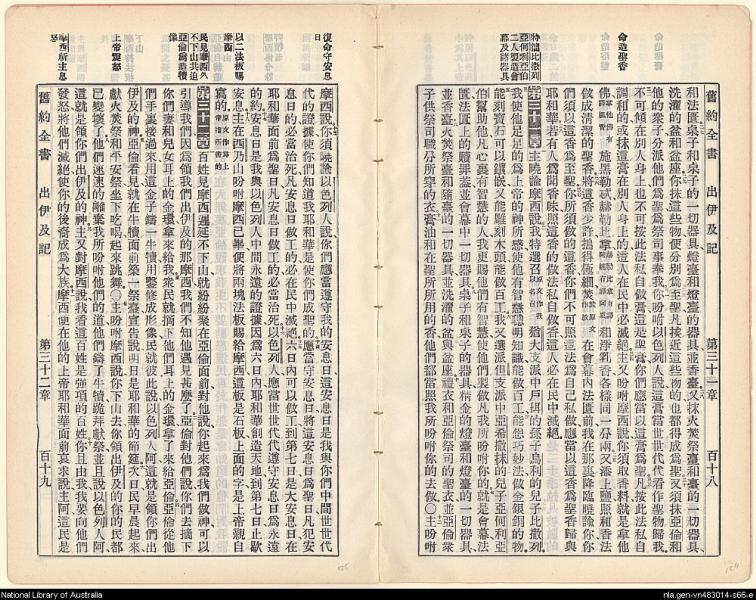 舊約全書 出伊及記 第三十一章 百十八
和法匱桌子和桌子的一切器具燈臺和燈臺的器具並香臺又抹火焚祭臺和臺的一切器具
洗濯的盆和盆座你抹這些物便分別為至聖凡接近這些物的也都得成為聖又須抹亞倫和
他的衆子分派他們為聖為祭司事奉我你吩咐以色列人說這膏當世世代代看作聖物歸我
不可傾在別人身上也不可按此法私自做膏這是聖膏你們應當以這膏為聖凡按此法私自
調和的或抹這膏在別人身上的這人在民中必滅絕主又吩咐摩西說你須取香料就是拿他
耶和華若有人為聞香味照這香的做法私自做香這人必在民中滅絕
第三十一章 主曉諭摩西說我特選召
命造聖香
特簡比撒列
亞何利亞伯
二人製造會
幕及諸器具
使他足足的為上帝的神所感使他有智慧聰明知識能做百工能想巧妙法做金銀銅的物
能刻寶石可以鑲嵌又能雕刻木頭能做百工我又選派但支派中亞希撒抹的兒子亞何利亞
伯幫助他凡心裏有智慧的人我更賜他們有智慧使他們製做凡我所吩咐你的就是會幕法
匱法匱上的贖罪蓋並會幕中一切器具桌子和桌子的器具精金的燈臺和燈臺的一切器具
並香臺火焚祭臺和臺的一切器具並洗濯的盆與盆座禮衣和亞倫祭司的聖衣並亞倫衆
子供祭司職分所穿的衣膏油和在聖所所用的香他們都當照我所吩咐你的去做○主吩咐
復命守安息
日
摩西說你須曉諭以色列人說你們應當遵守我的安息日這安息日是我與你們中間世世代
代的證據使你們知道我耶和華是使你們成聖的應當守安息日將這安息日為聖日凡犯安
息日的必當治死凡安息日做工的必在民中滅絕六日內可以做工到第七日是大安息日在
耶和華面前為聖日凡安息日做工的必當治死以色列人應當世世代代遵守安息日為永遠
的約安息日是我與以色列人中間永遠的證據因為六日內耶和華創造天地到第七日止歇
安息主在西乃山吩咐摩西已畢便將兩塊法板賜給摩西這板是石板上面的字是上帝親自
寫的
以二法板賜
摩西
第三十二章 百姓見摩西遲延不下山就紛紛聚在亞倫面前對他說你起來為我們做神可以
民見摩西久
不下山共迫
亞倫為造犢
像
引導我們因為領我們出伊及的那摩西我們不知他遇見甚麼了亞倫對他們說你們去摘下
你們妻和兒女耳上的金環拿來給我衆民就摘下他們耳上的金環拿來給亞倫亞倫從他
們手裏接過來用這金子鑄一牛犢用鑿修成形像衆民就彼此說以色列人阿這就是領你們出
伊及的神亞倫看見就在牛犢面前築一祭臺宣告說明日是耶和華的節筵次日民早晨起來
獻火焚祭和平安祭坐下吃喝起來跳舞○主吩咐摩西說你下山去你領出伊及的你的民都
上帝震怒
已變壞了他們速速的離棄我所吩咐他們的道他們鑄了牛犢跪拜獻祭並且說以色列人阿
這就是領你們出伊及的神主又對摩西說我看這百姓是強項的百姓你且由我我要向他們
發怒將他們滅絕使你的後裔成為大族摩西便在他的上帝耶和華面前哀求說主阿這民是
舊約全書 出伊及記 第三十二章 百十九
National Library of Australia
nla.gen-vn483014-s66-e